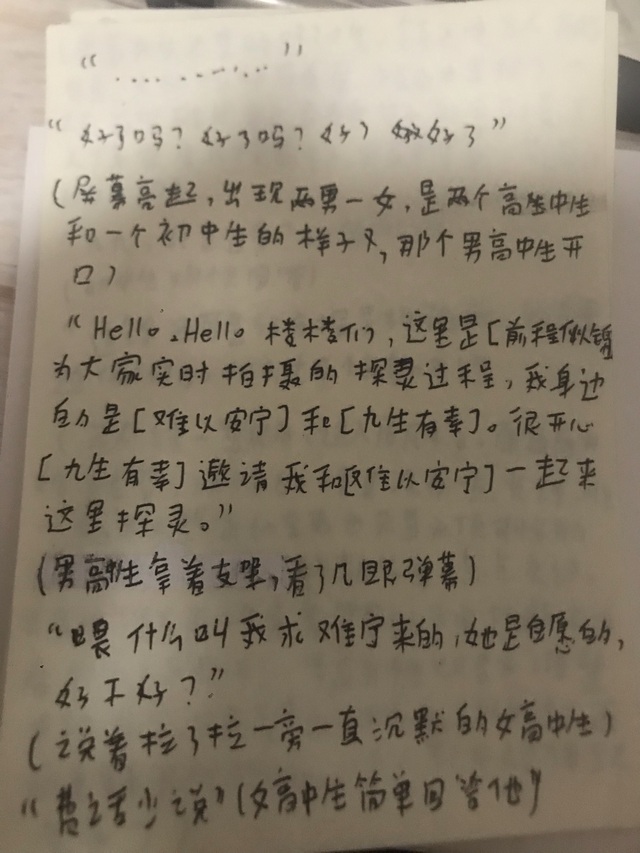 “…………”
“好了吗？好了吗？好了 好了”
(屏幕亮起，出现两男一女，是两个高中生
和一个初中生的样子，那个男高中生开
口)
“Hello，Hello 楼楼们，这里是[前程似锦
为大家实时拍摄的探灵过程，我身边
的是[难以安宁]和[九生有幸]。很开心
[九生有幸]邀请我和[难以安宁]一起来
这里探灵。”
(男高中生拿着支架，看了几眼弹幕)
“喂 什么叫我求难宁来的，她是自愿的，
好不好？”
(说着拉了拉一旁一直沉默的女高中生)
“费话少说”(女高中生简单回答他)